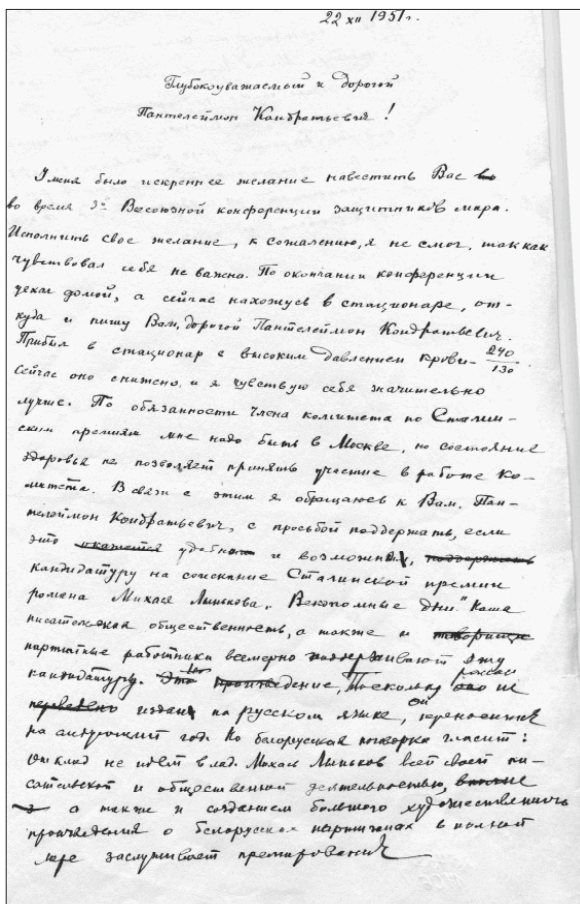 22 XII 1951 г.
Глубокоуважаемый и дорогой
Пантелеймон Кондратьевич!
У меня было искреннее желание навестить Вас во
во время 3й Всесоюзной конференции защитников мира.
Исполнить свое желание, к сожалению, я не смог, так как
чувствовал себя не важно. По окончании конференции
уехал домой, а сейчас нахожусь в стационаре, от-
куда и пишу Вам, дорогой Пантелеймон Кондратьевич.
Прибыл в стационар с высоким давлением крови – 240/130
Сейчас оно снижено, и я чувствую себя значительно
лучше. По обязанности члена комитета по Сталин-
ским премиям мне надо быть в Москве, но состояние
здоровья не позволяет принять участие в работе Ко-
митета. В связи с этим я обращаюсь к Вам, Пан-
телеймон Кондратьевич, с просьбой поддержать, если
это окажется удобно и возможно, поддержать
кандидатуру на соискание Сталинской премии
романа Михася Лынькова „Векопомные дни". Наша
писательская общественность, а также и товарищи
партийные работники всемерно поддерживают эту
кандидатуру. Это произведение, Поскольку роман не
переведено издан на русском языке, он переносится
на следующий год. Но белорусская поговорка гласит:
Отклад не идет в лад. Михась Лыньков всей своей пи-
сательской и общественной деятельностью, вполне
а также и созданием большого художественного
произведения о белорусских партизанах в полной
мере заслуживает премирования